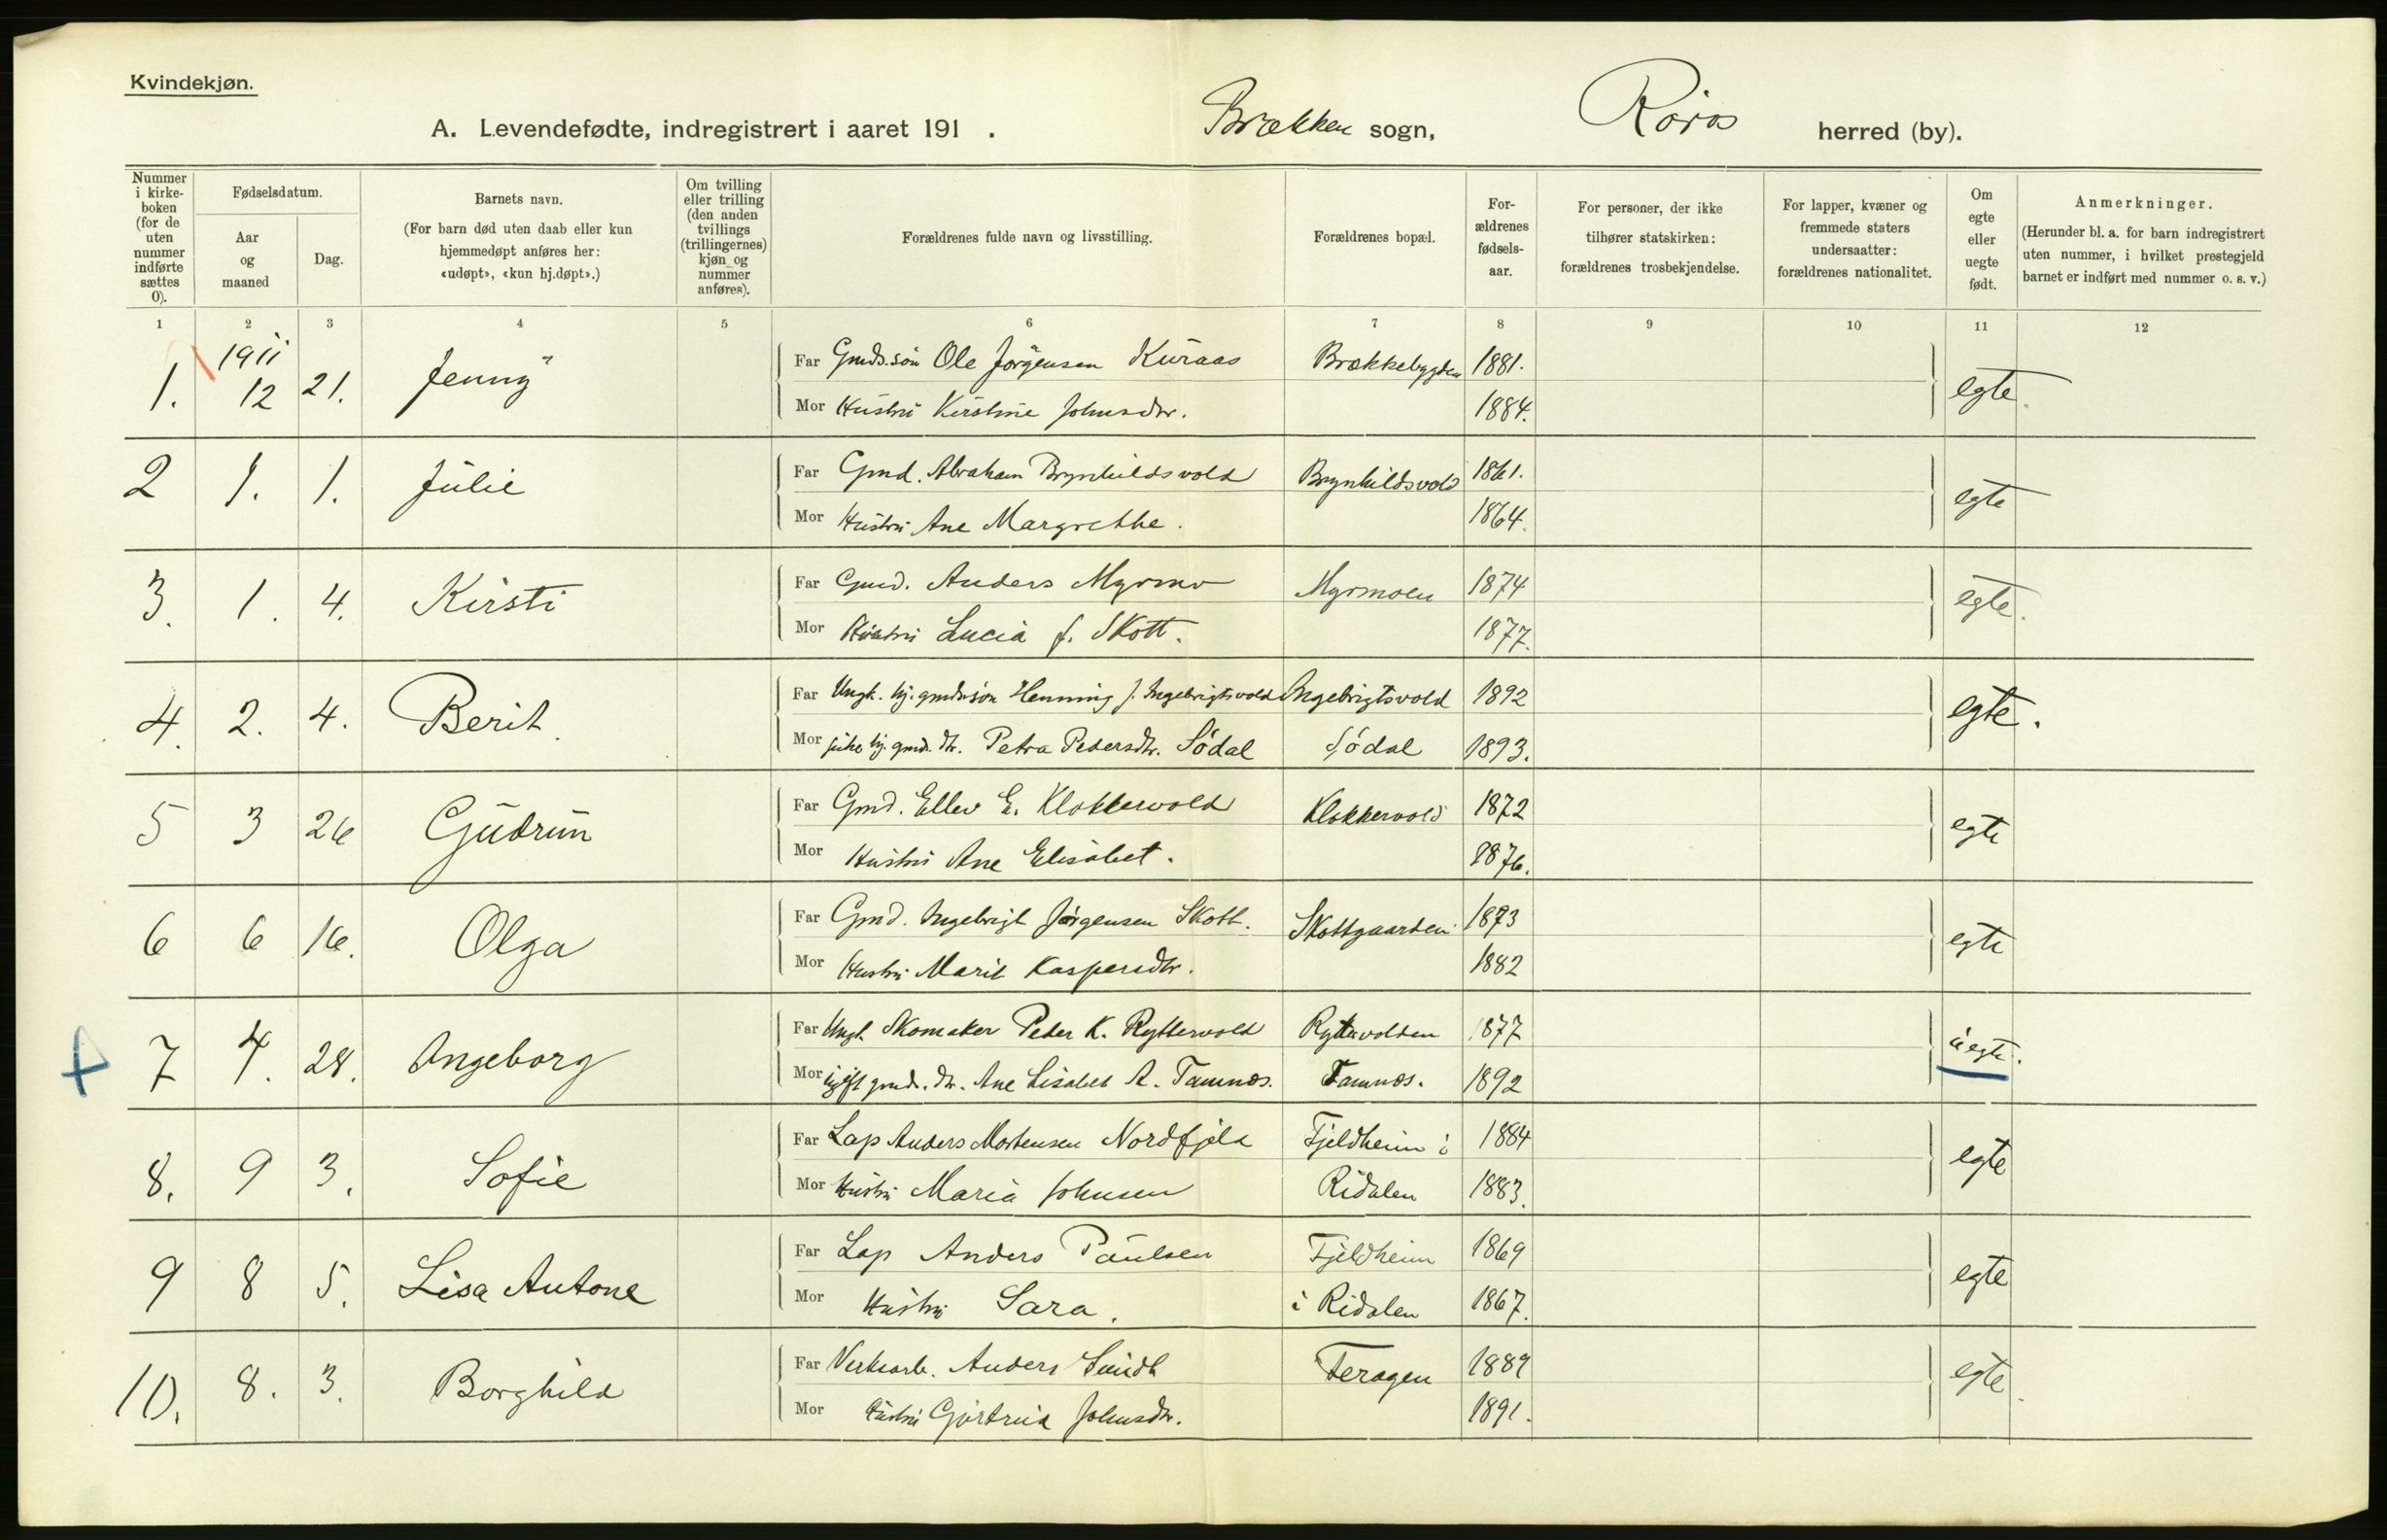 Kvindekjøn.
A. Levendefødte, indregistrert i aaret 191 . Brækken sogn, Røros herred (by).
Nummer i kirke-boken (for de uten nummer indførte sættes 0).
Fødselsdatum.
Aar og maaned
Dag.
Barnets navn.
(For barn død uten daab eller kun hjemmedøpt anføres her: «udøpt», «kun hj.døpt».)
Om tvilling eller trilling (den anden tvillings (trillingernes) kjøn og nummer anføres).
Forældrenes fulde navn og livsstilling.
Forældrenes bopæl.
For-ældrenes fødsels-aar.
For personer, der ikke tilhører statskirken: forældrenes trosbekjendelse.
For lapper, kvæner og fremmede staters undersaatter: forældrenes nationalitet.
Om egte eller uegte født.
Anmerkninger.
(Herunder bl. a. for barn indregistrert uten nummer, i hvilket prestegjeld barnet er indført med nummer o. s. v.)
1 2 3 4 5 6 7 8 9 10 11 12
1911
1. 12 21. Jenny Far Gmds.søn Ole Jørgensen Kuraas Brækkebygden 1881. egte.
Mor Hustru Kirstine Johnsdtr. 1884.
2 1. 1. Julie Far Gmd. Abraham Brynhildsvold Brynhildsvold 1861. egte
Mor Hustru Ane Margrethe. 1864.
3. 1. 4. Kirsti Far Gmd. Anders Myrmo Myrmoen 1874 egte.
Mor Hustru Lucia f. Skott. 1877.
4. 2. 4. Berit Far Ungk. hj. gmdssøn Henning J. Ingebrigtsvold Ingebrigtsvold 1892 egte.
Mor pike hj. gmd. dtr. Petra Pedersdtr. Sødal Sødal 1893.
5 3 26 Gudrun Far Gmd. Ellev E. Klokkervold Klokkervold 1872 egte
Mor Hustru Ane Elisabet. 1876.
6 6 16. Olga Far Gmd. Ingebrigt Jørgensen Skott. Skottgaarden 1873 egte
Mor Hustru Marit Kaspersdtr. 1882
7 4. 28. Ingeborg Far Ungk. Skomaker Peder K. Ryttervold Ryttervolden 1877 uegte.
Mor ugift gmds. dtr. Ane Lisabet A. Tamnes. Tamnes. 1892
8. 9 3. Sofie Far Lap Anders Mortensen Nordfjeld Fjeldheim i 1884 egte
Mor Hustru Maria Johnsen Ridalen 1883.
9 8 5. Lisa Antone Far Lap Anders Paulsen Fjeldheim 1869 egte
Mor Hustru Sara. i Ridalen 1867.
10. 8. 3. Borghild Far Verksarb. Anders Sundt Feragen 1889 egte.
Mor Hustru Gjertrud Johnsdtr. 1891.